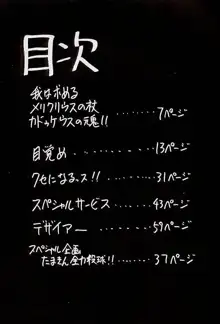 目次
我は求める
メリクリウスの杖
カドゥケウスの魂!!
……7ページ
目覚め……13ページ
クセになるっス!!……31ページ
スペシャルサービス……43ページ
デザイアー……59ページ
スペシャル企画
たまきん全力投球!!……37ページ